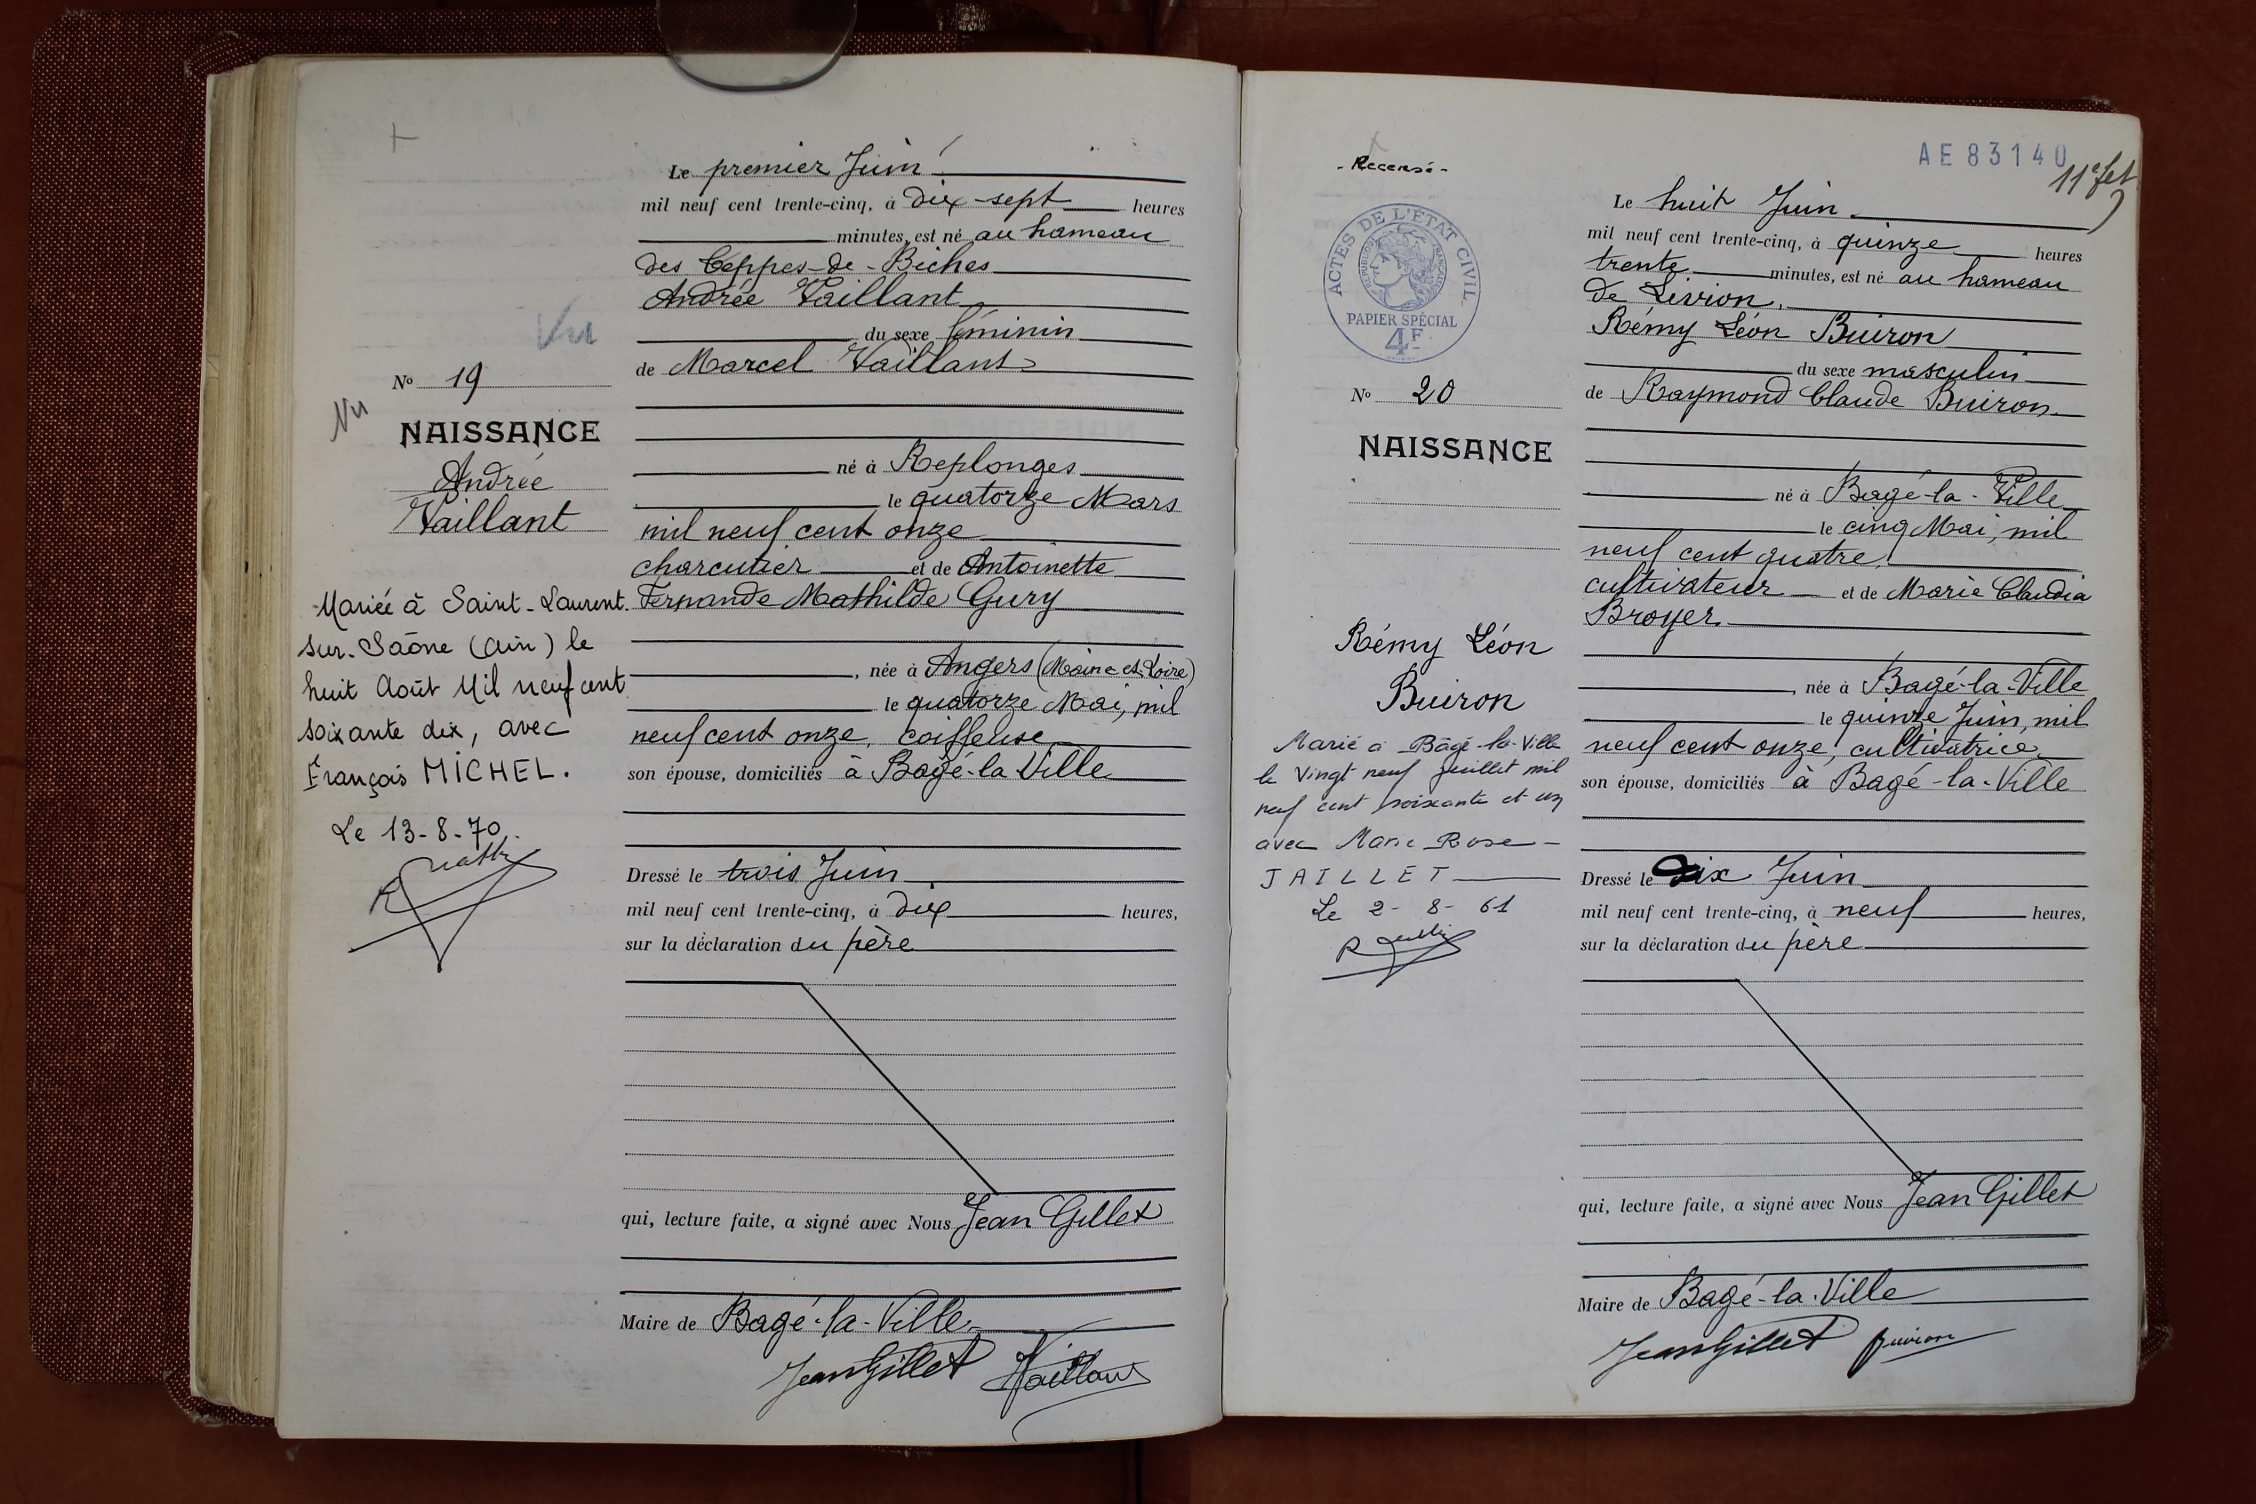 Le premier Juin
mil neuf cent trente-cinq, à dix-sept heures
minutes, est né au hameau
des Ceppes-de-Biches
Andrée Vaillant
du sexe féminin
de Marcel Vaillant
né à Replonges
le quatorze Mars
mil neuf cent onze
charcutier et de Antoinette
Fernande Mathilde Gury
, née à Angers (Maine et Loire)
le quatorze Mai, mil
neuf cent onze, coiffeuse
son épouse, domiciliés à Bagé-la Ville
Dressé le trois Juin
mil neuf cent trente-cinq, à dix heures,
sur la déclaration du père
qui, lecture faite, a signé avec Nous Jean Gillet
Maire de Bagé-la-Ville
Jean Gillet Vaillant
Vu
No 19
Vu
NAISSANCE
Andrée
Vaillant
Mariée à Saint-Laurent.
sur-Saône (Ain) le
huit Août Mil neuf cent
soixante dix, avec
François MICHEL.
Le 13-8-70.
- Recensé -
ACTES DE L'ÉTAT CIVIL
RÉPUBLIQUE FRANÇAISE
PAPIER SPÉCIAL
4F
No 20
NAISSANCE
Rémy Léon
Buiron
Marié à Bâgé-la-Ville
le Vingt neuf Juillet mil
neuf cent soixante et un
avec Marie Rose
JAILLET
Le 2-8-61
AE83140
11e fet
Le huit Juin
mil neuf cent trente-cinq, à quinze heures
trente minutes, est né au hameau
de Livion,
Rémy Léon Buiron
du sexe masculin
de Raymond Claude Buiron
né à Bagé-la-Ville
le cinq Mai, mil
neuf cent quatre,
cultivateur et de Marie Claudia
Broyer
, née à Bagé-la-Ville
le quinze Juin, mil
neuf cent onze, cultivatrice
son épouse, domiciliés à Bagé-la-Ville
Dressé le Dix Juin
mil neuf cent trente-cinq, à neuf heures,
sur la déclaration du père
qui, lecture faite, a signé avec Nous Jean Gillet
Maire de Bagé-la-Ville
Jean Gillet Buiron